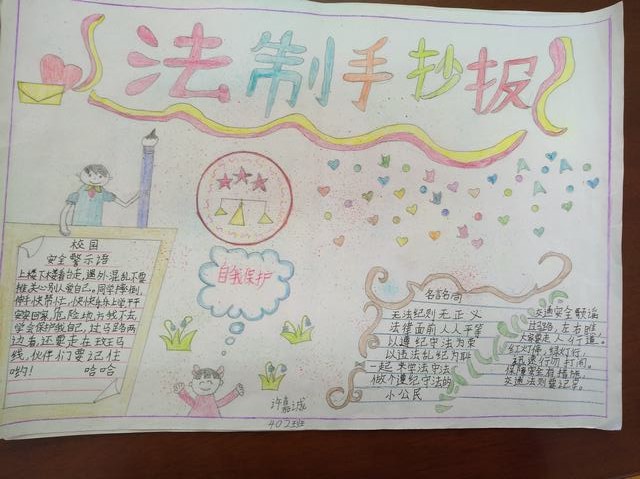 法制手抄报
校园
安全警示语
上楼下楼看台走,遇外混乱不要
推关心别人爱自己。同学摔倒,
伸手快帮忙,快快乐乐上学平平
安安回家,危险地方我不去
学会保护我自己,过马路两
边看,还要走在斑马
线,伙伴们要记住
哟! 哈哈
自我保护
名言名句
无法纪则无正义
法律面前人人平等
以遵纪守法为荣
以违法乱纪为耻
一起来学法守法
做个遵纪守法的
小公民
交通安全歌谣
过马路,左右瞧
大家要走人行道。
红灯停,绿灯行,
保障安全有措施
交通法则要记牢。
许嘉诚
402班